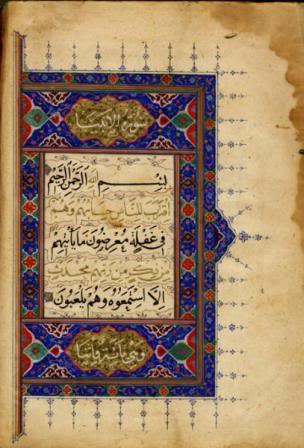 سورة الانبياء
بسم الله الرحمن الرحيم
اقترب للناس حسابهم وهم
في غفلة معرضون ما يأتيهم
من ذكر من ربهم محدث
الا استمعوه وهم يلعبون